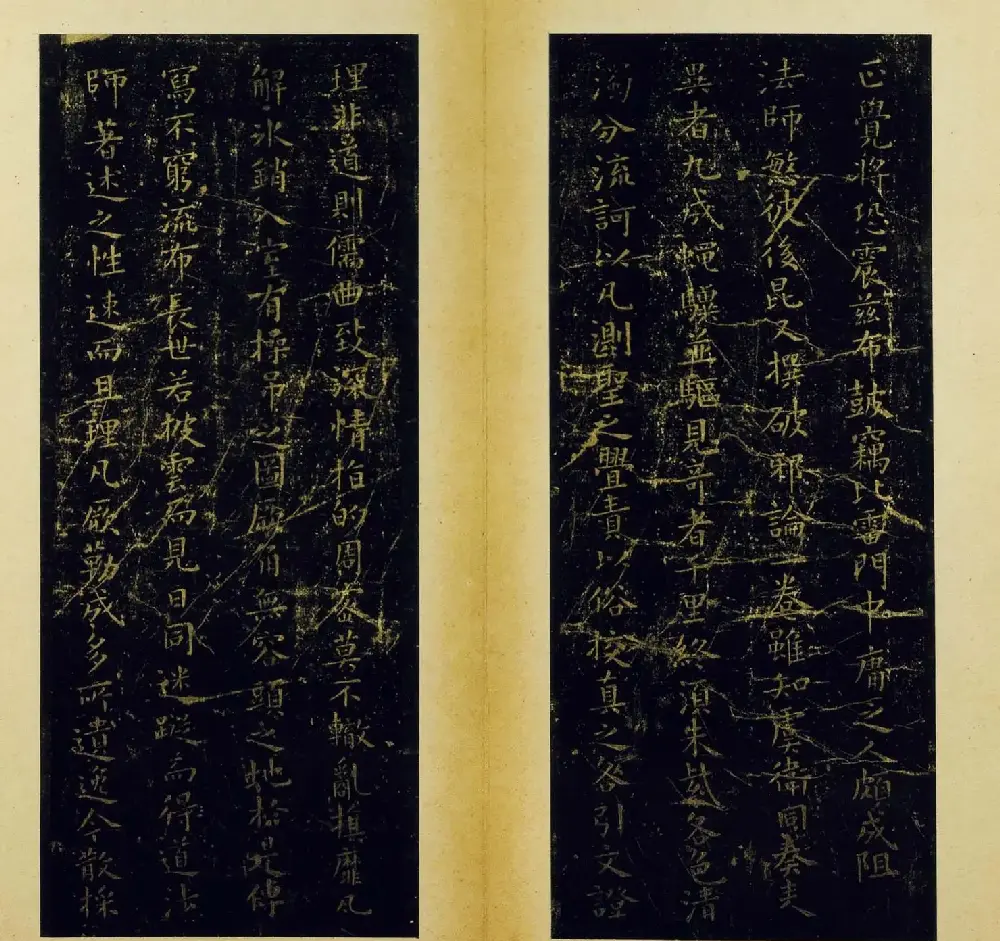 正覺將恐震茲布鼓竊比雷門中庸之人頗成阻
法師愍彼後昆又撰破邪論一卷雖知虞衛同奏表
異者九成蠅驥並驅見奇者千里終須朱紫各色清
濁分流訶以凡測聖之舋責以俗校真之咎引文證
理非道則儒曲致深情指的周密莫不轍亂旗靡瓦
解冰銷入室有操之圖無容頭之地於是傳
寫不窮流布長世若披雲而見日同迷蹤而得道法
師著述之性速而且理凡厥勒成多所遺逸今散採